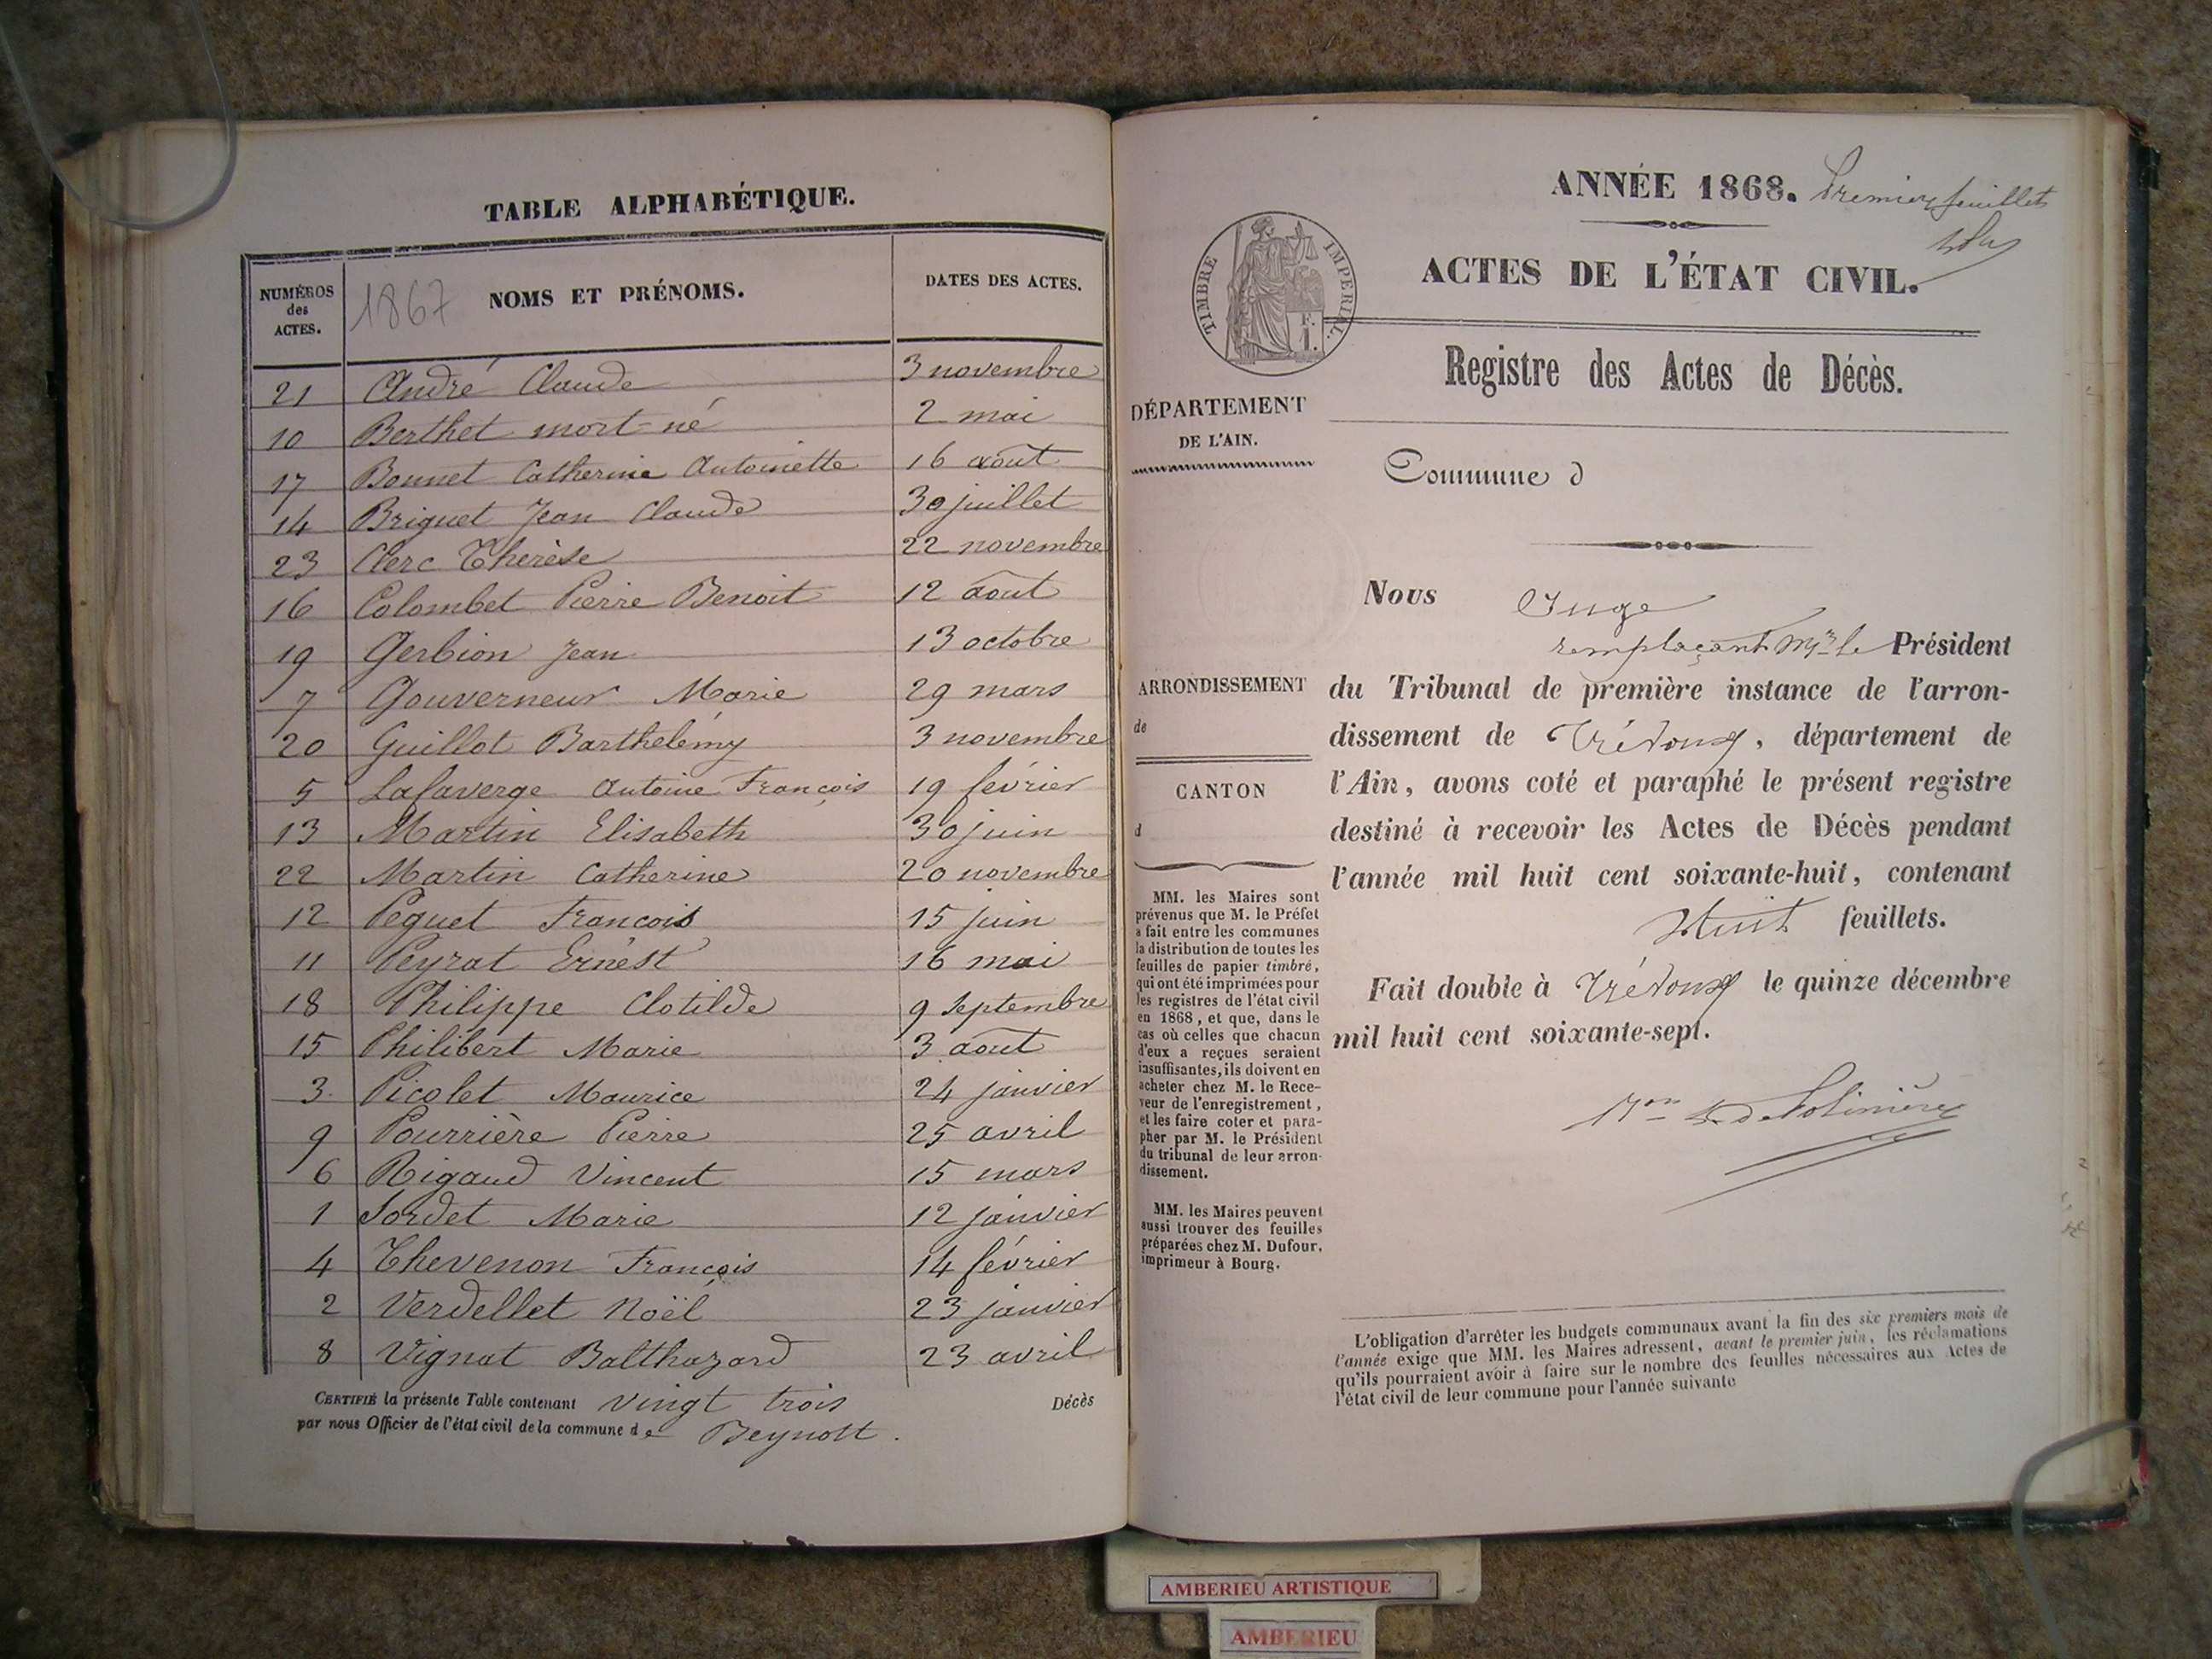 TABLE ALPHABÉTIQUE.
NUMÉROS des ACTES. 1867 NOMS ET PRÉNOMS. DATES DES ACTES.
21 André Claude 3 novembre
10 Berthet mort-né 2 mai
17 Bonnet Catherine Antoinette 16 août
14 Briguet Jean Claude 30 juillet
23 Clerc Thérèse 22 novembre
16 Colombet Pierre Benoit 12 août
19 Gerbion Jean 13 octobre
7 Gouverneur Marie 29 mars
20 Guillot Barthélemy 3 novembre
5 Lafaverge Antoine François 19 février
13 Martin Elisabeth 30 juin
22 Martin Catherine 20 novembre
12 Peguet François 15 juin
11 Peyrat Ernest 16 mai
18 Philippe Clotilde 9 Septembre
15 Philibert Marie 3 août
3 Picolet Maurice 24 janvier
9 Pourrière Pierre 25 avril
6 Rigaud Vincent 15 mars
1 Sordet Marie 12 janvier
4 Thevenon François 14 février
2 Verdellet Noël 23 janvier
8 Vignat Balthazard 23 avril
CERTIFIÉ la présente Table contenant vingt trois Décès
par nous Officier de l'état civil de la commune de Beynost.
ANNÉE 1868. Premier feuillet
ACTES DE L'ÉTAT CIVIL.
TIMBRE IMPÉRIAL.
F.
1.
Registre des Actes de Décès.
DÉPARTEMENT
DE L'AIN.
Commune d
Nous Juge
remplaçant Mr le Président
du Tribunal de première instance de l'arron-
dissement de Trévoux, département de
l'Ain, avons coté et paraphé le présent registre
destiné à recevoir les Actes de Décès pendant
l'année mil huit cent soixante-huit, contenant
Huit feuillets.
Fait double à Trévoux le quinze décembre
mil huit cent soixante-sept.
ARRONDISSEMENT
de
CANTON
d
MM. les Maires sont
prévenus que M. le Préfet
a fait entre les communes
la distribution de toutes les
feuilles de papier timbré,
qui ont été imprimées pour
les registres de l'état civil
en 1868, et que, dans le
cas où celles que chacun
d'eux a reçues seraient
insuffisantes, ils doivent en
acheter chez M. le Rece-
veur de l'enregistrement,
et les faire coter et para-
pher par M. le Président
du tribunal de leur arron-
dissement.
MM. les Maires peuvent
aussi trouver des feuilles
préparées chez M. Dufour,
imprimeur à Bourg.
L'obligation d'arrêter les budgets communaux avant la fin des six premiers mois de
l'année exige que MM. les Maires adressent, avant le premier juin, les réclamations
qu'ils pourraient avoir à faire sur le nombre des feuilles nécessaires aux Actes de
l'état civil de leur commune pour l'année suivante
AMBERIEU ARTISTIQUE
AMBERIEU